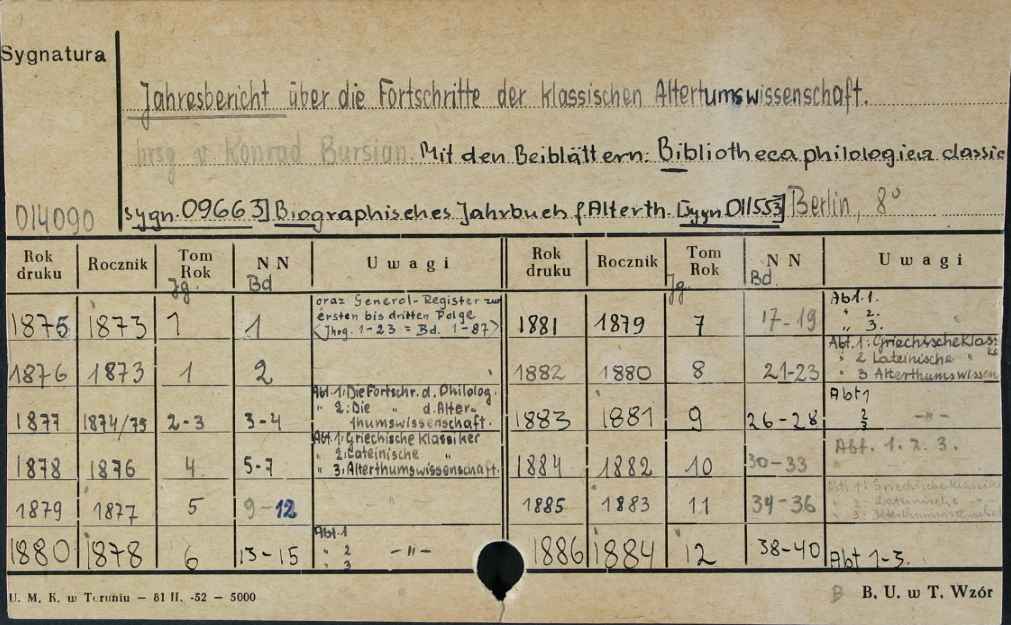 Sygnatura
Jahresbericht über die Fortschritte der klassischen Altertumswissenschaft.
hrsg v Konrad Bursian. Mit den Beiblättern: Bibliotheca philologica classic
014090 sygn. 09663] Biographisches Jahrbuch f. Alterth. [sygn 011553] Berlin, 8°
Rok druku Rocznik Tom Rok Jg. NN Bd Uwagi Rok druku Rocznik Tom Rok Jg. NN Bd. Uwagi
1875 1873 1 1 oraz General-Register zur
ersten bis dritten Folge
<Jhrg. 1-23 = Bd. 1-87>
1881 1879 7 17-19 Abt. 1.
" 2.
" 3.
1876 1873 1 2
1882 1880 8 21-23 Abt. 1: Griechische Klas:
" 2 Lateinische "
" 3 Alterthumswissen
1877 1874/75 2-3 3-4 Abt. 1: Die Fortschr. d. Philolog.
" 2: Die " d. Alter-
thumswissenschaft.
1883 1881 9 26-28 Abt 1
2 -"-
3
1878 1876 4 5-7 Abt. 1: Griechische Klassiker
" 2: Lateinische "
" 3: Alterthumswissenschaft.
1884 1882 10 30-33 Abt. 1. 2. 3.
1879 1877 5 9-12 "
1885 1883 11 34-36 Abt. 1: Griechische Klassike
" 2 Lateinische -"-
" 3
1880 1878 6 13-15 Abt. 1
" 2 -"-
" 3
1886 1884 12 38-40 Abt 1-3.
U. M. K. w Toruniu — 81 II. -52 — 5000 B. U. w T. Wzór